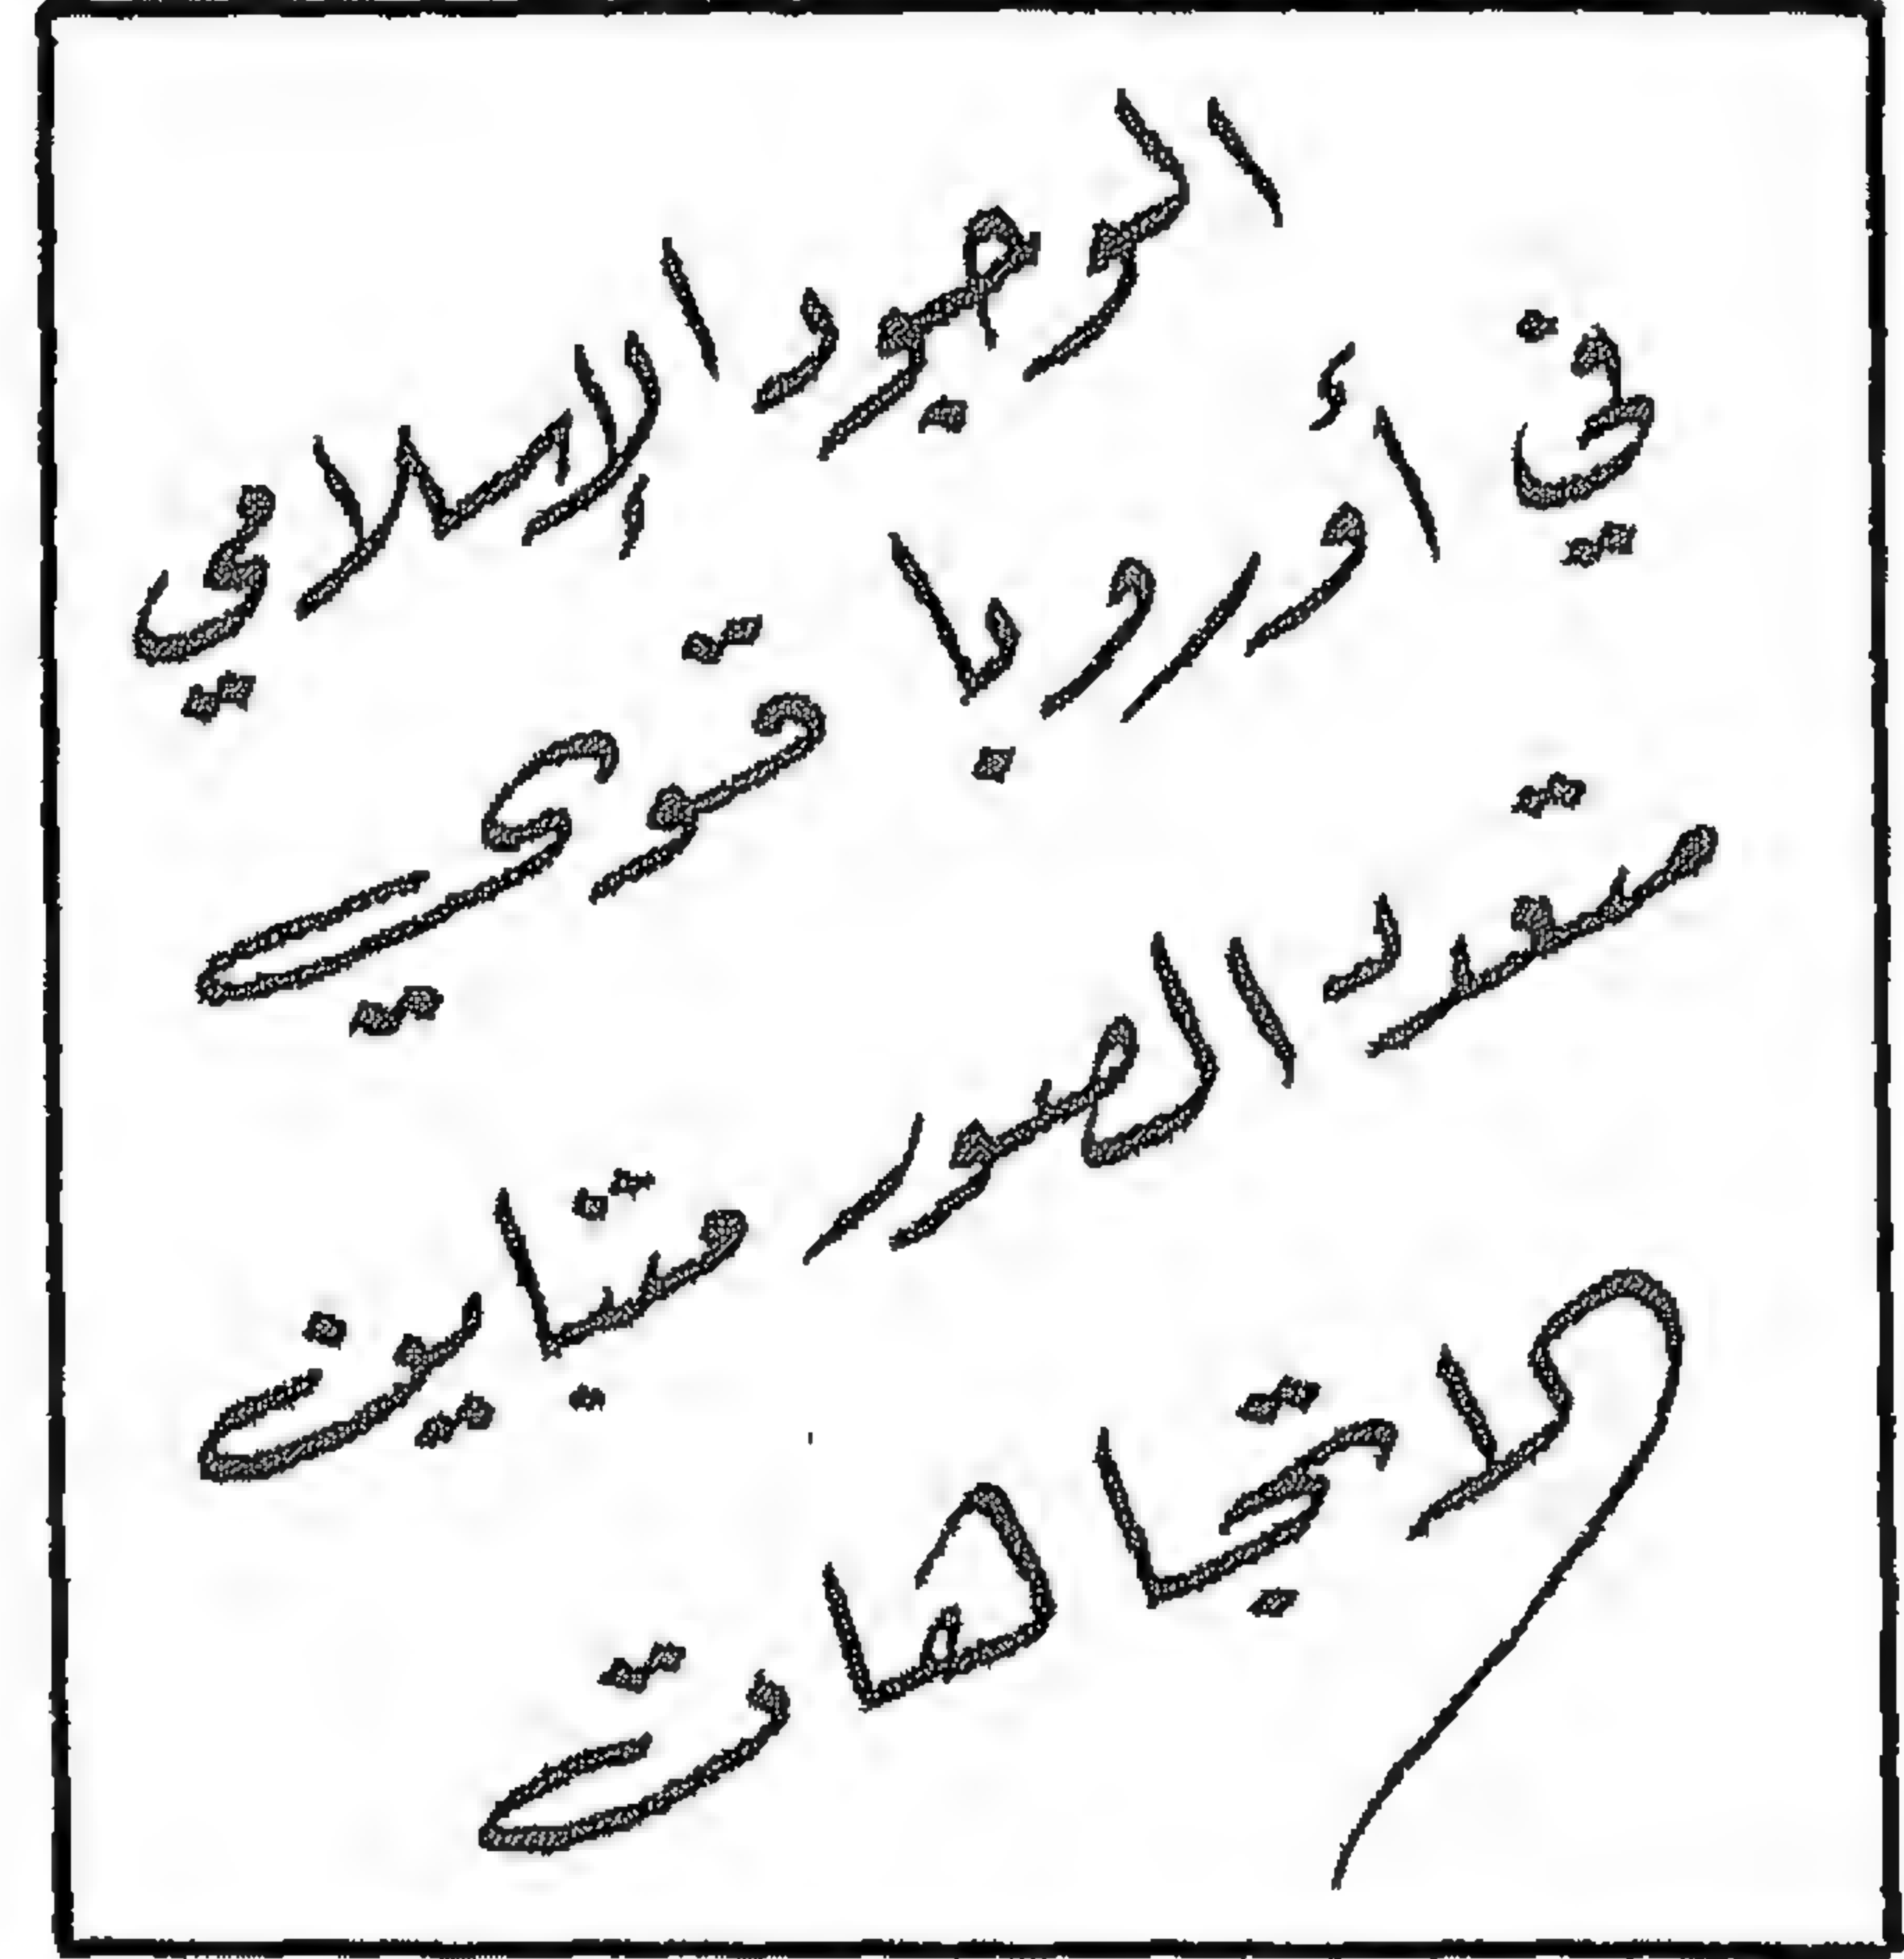 الوجود الإسلامي
في أوروبا قوي
متعدد الصور متباين
الاتجاهات